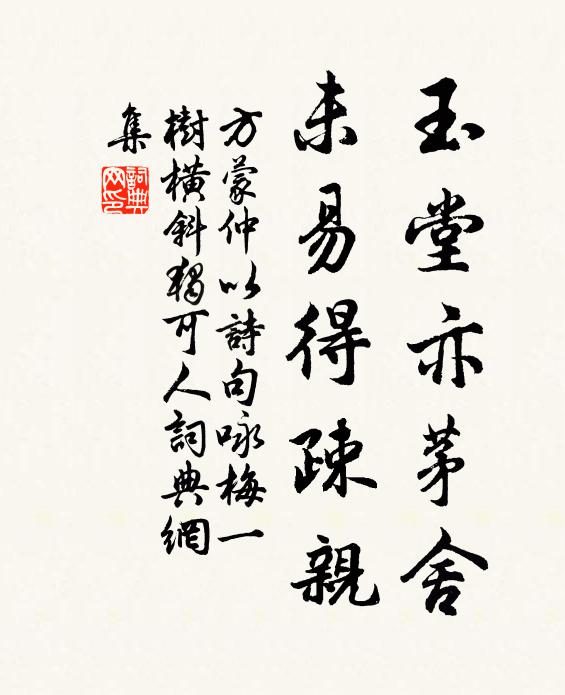 玉堂亦茅舍
未易得疎親
方蒙仲以詩句咏梅一
樹橫斜獨可人詞典網
集
詞典网印